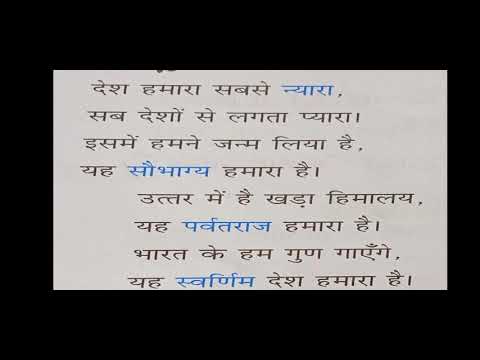 देश हमारा सबसे न्यारा,
सब देशों से लगता प्यारा।
इसमें हमने जन्म लिया है,
यह सौभाग्य हमारा है।
उत्तर में है खड़ा हिमालय,
यह पर्वतराज हमारा है।
भारत के हम गुण गाएँगे,
यह स्वर्णिम देश हमारा है।